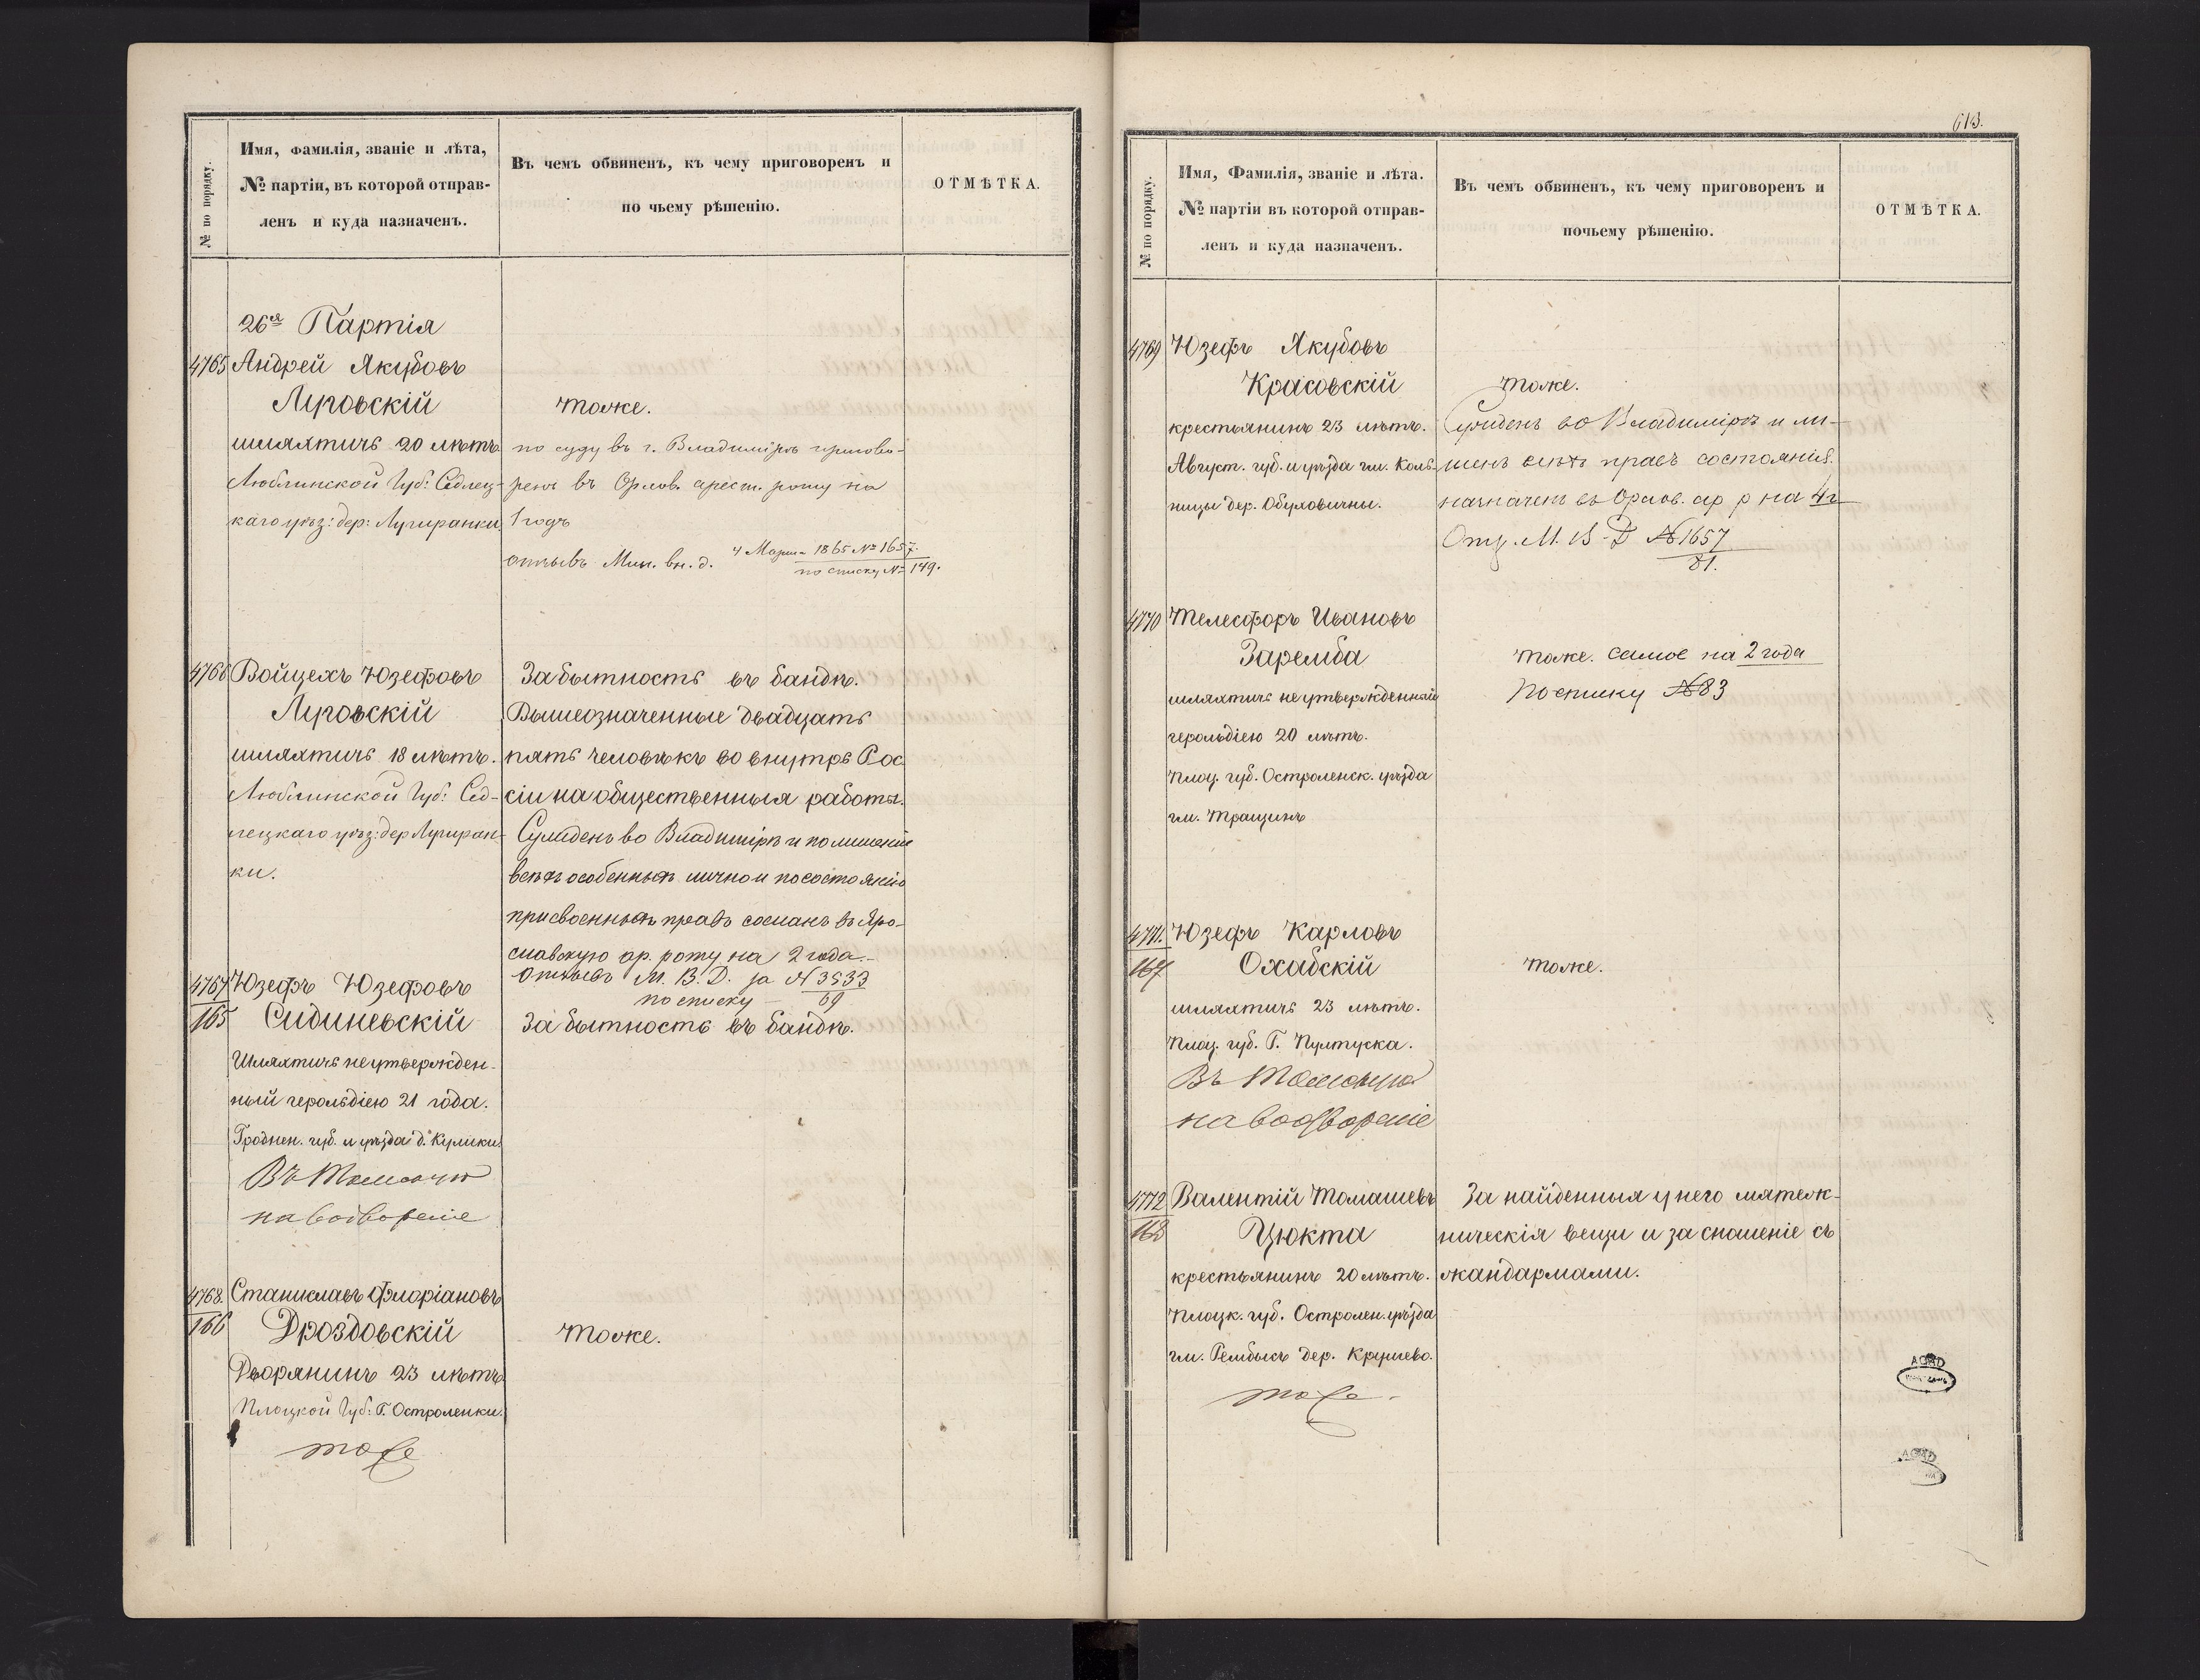 № по порядку.
Имя, фамилія, званіе и лѣта,
№ партіи, въ которой отправ-
ленъ и куда назначенъ.
Въ чемъ обвиненъ, къ чему приговоренъ и
по чьему рѣшенію.
ОТМѢТКА.
26я Партія
4765 Андрей Якубовъ
Луговскій
шляхтичъ 20 лѣтъ
Люблинской Губ: Седлец-
каго уѣз: дер:
тоже.
по суду въ г. Владимірѣ пригово-
ренъ въ Орлов. арест. роту на
1 годъ
отзывъ Мин. вн. д. 4 Марта 1865 № 1657.
по списку № 149.
4766 Войцехъ Юзефовъ
Луговскій
шляхтичъ 18 лѣтъ.
Люблинской Губ: Сед-
лецкаго уѣз: дер
ки.
За бытность въ бандѣ.
Вышеозначенные двадцать
пять человѣкъ во внутрь Рос
сіи на общественныя работы.
Сужденъ во Владимірѣ и по лишеніи
всѣхъ особенныхъ лично и по состоянію
присвоенныхъ правъ сосланъ въ Яро-
славскую ар. роту на 2 года.-
отзывъ М. В. Д. за № 3533
по списку 69
4767 Юзефъ Юзефовъ
165 Сидиневскій
Шляхтичъ не утвержден-
ный герольдіею 21 года.
Гроднен. губ. и уѣзда д. Кулики.
Въ Томскую
на водвореніе
За бытность въ бандѣ.
4768. Станиславъ Флоріановъ
166 Дроздовскій
Дворянинъ 23 лѣтъ
Плоцкой Губ: Г. Остроленки.
тоже
тоже.
613.
№ по порядку.
Имя, Фамилія, званіе и лѣта.
№ партіи въ которой отправ-
ленъ и куда назначенъ.
Въ чемъ обвиненъ, къ чему приговоренъ и
почьему рѣшенію.
ОТМѢТКА.
4769 Юзефъ Якубовъ
Красовскій
крестьянинъ 23 лѣтъ.
Август. губ. и уѣзда гм. Коль-
ницы дер. Обуховичны.
тоже.
Сужденъ во Владимірѣ и ли-
шенъ всѣхъ правъ состоянія.
назначенъ въ Орлов. ар р на 4 г
Отз. М. В. Д № 1657
81.
4770 Телесфоръ Ивановъ
Заремба
шляхтичъ не утвержденный
герольдіею 20 лѣтъ.
Плоц. губ. Остроленск. уѣзда
гм. Тращинъ
тоже. самое на 2 года
По списку № 83
4771. Юзефъ Карловъ
167 Охабскій
шляхтичъ 23 лѣтъ.
Плоц. губ. Г. Пултуска.
Въ Томскую
на водвореніе
тоже.
4772 Валентій Томашевъ
168 Цюкта
крестьянинъ 20 лѣтъ.
Плоцк. губ. Остролен. уѣзда
гм. Рембысъ дер. Крушево.
тоже.
За найденныя у него мятеж-
ническія вещи и за сношеніе съ
жандармами.
AGAD
AGAD